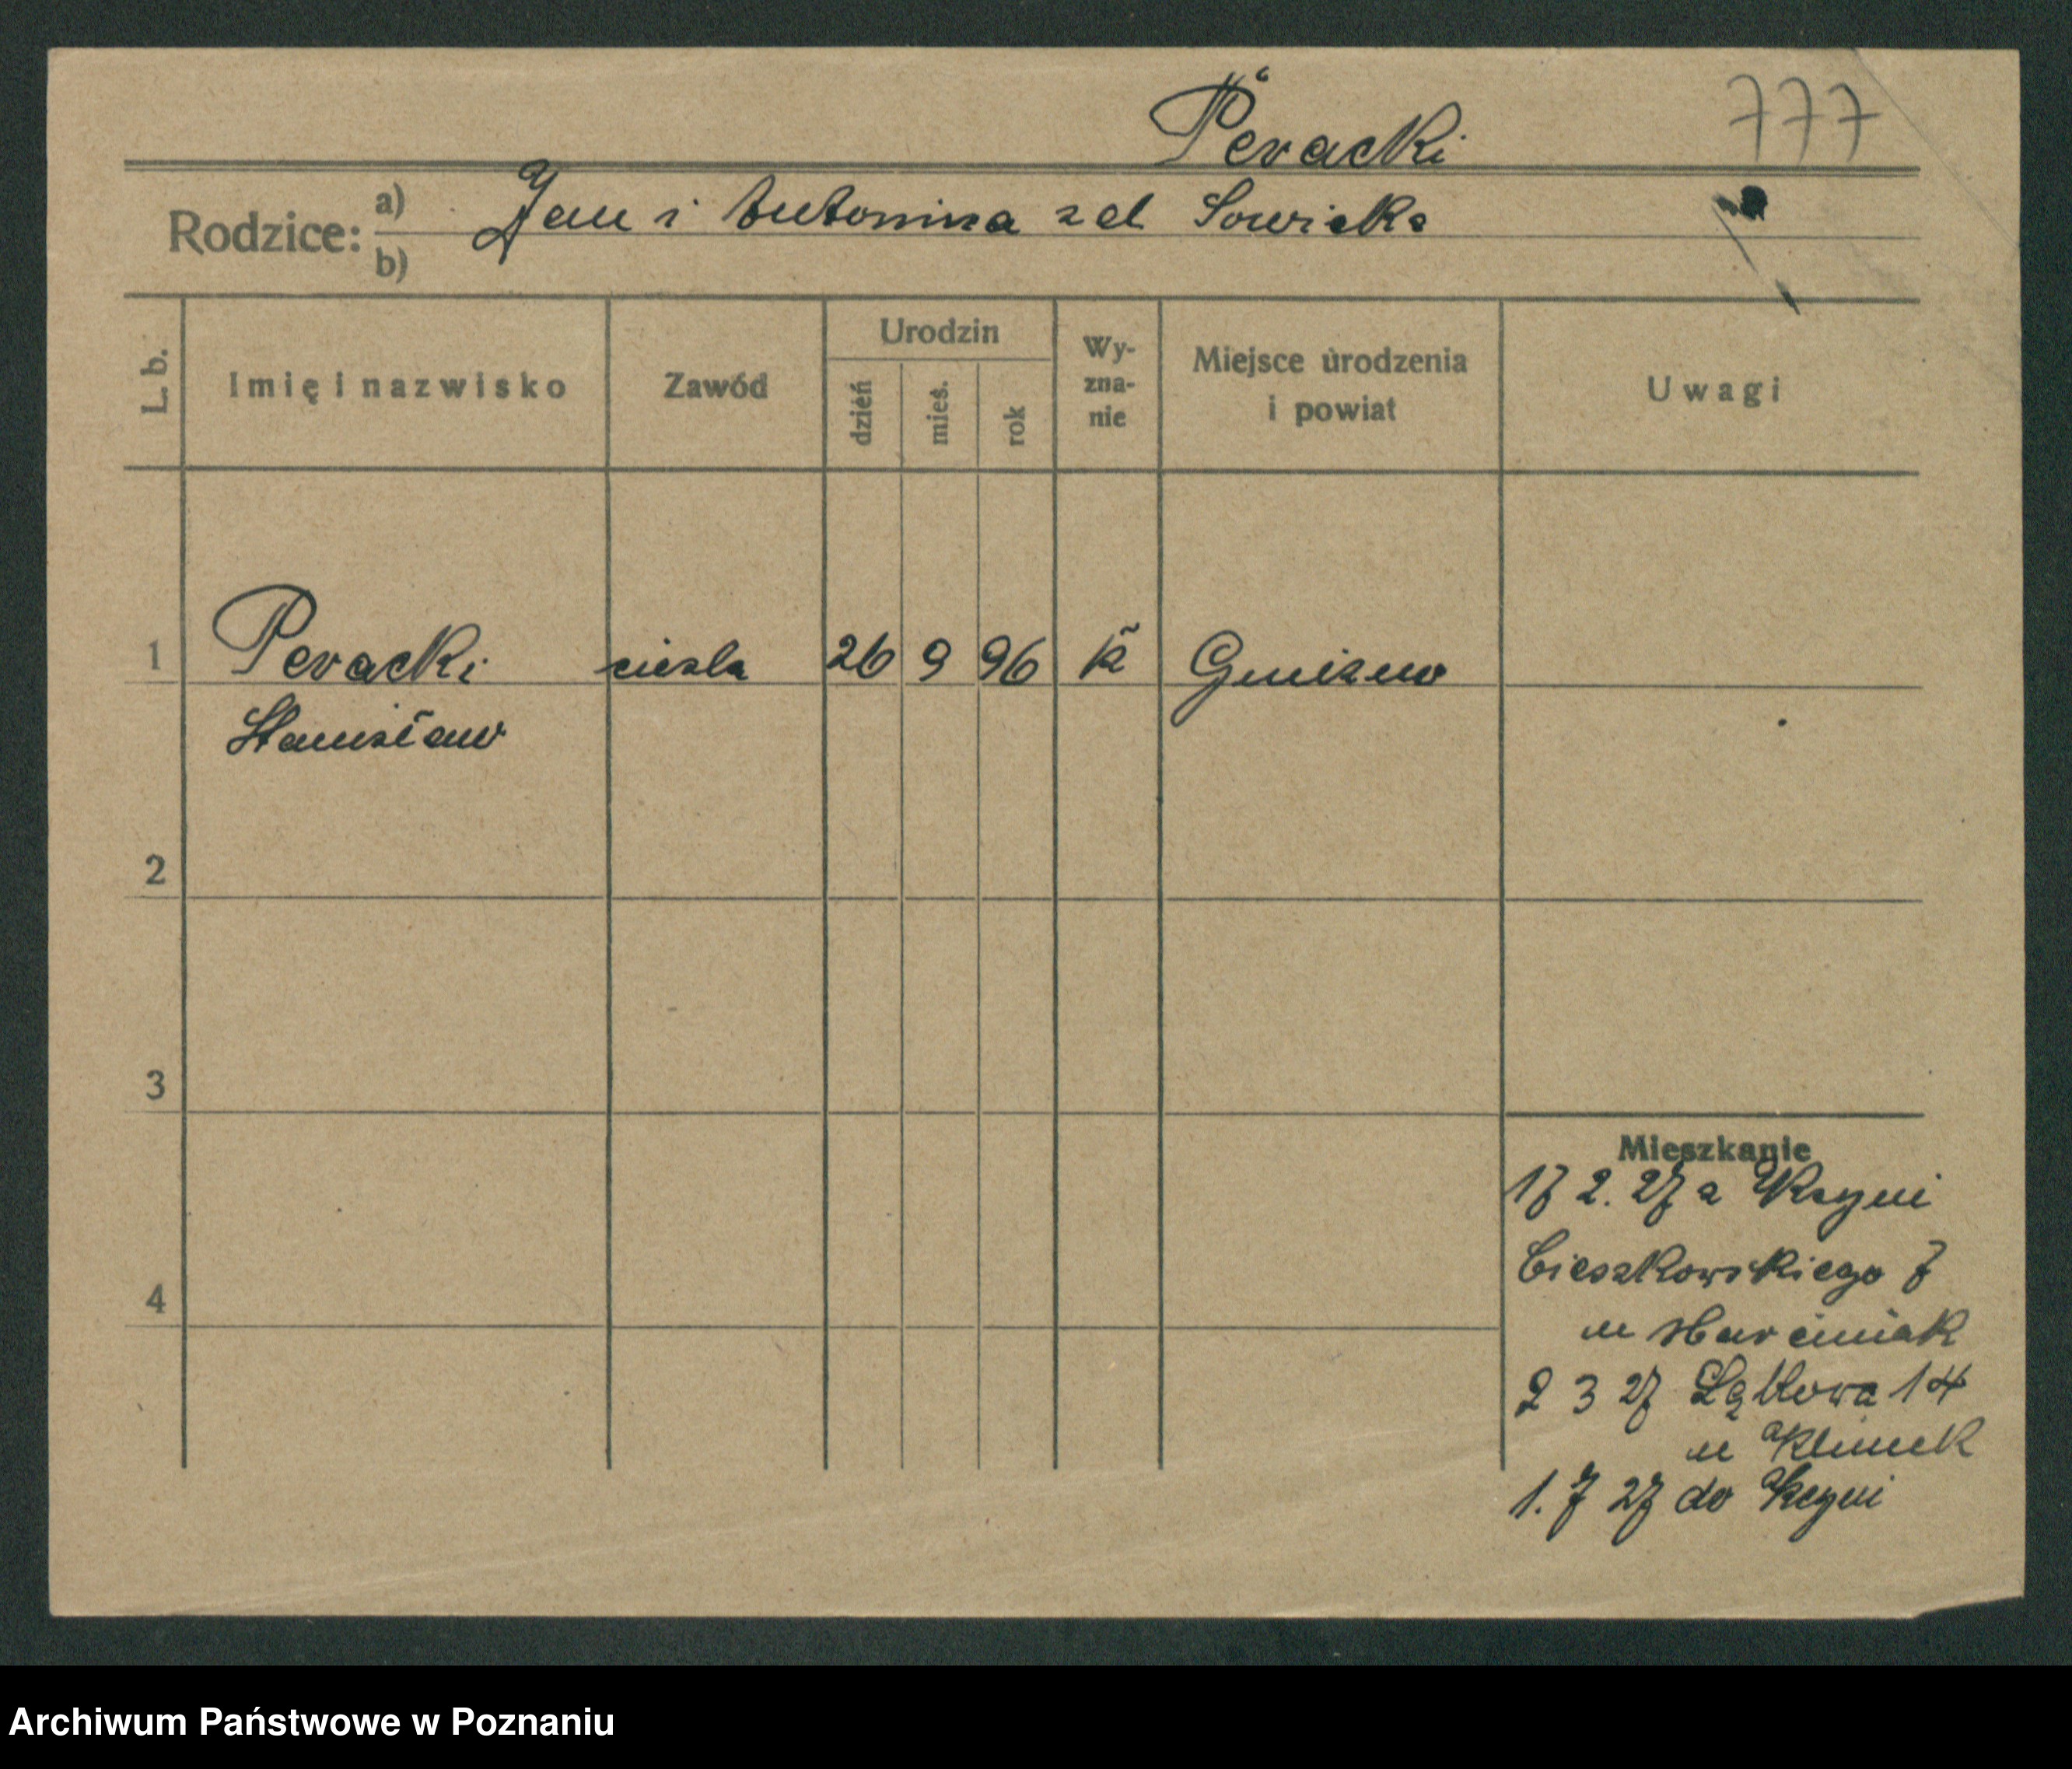 Peracki 777
Rodzice: a) Jan i Antonina z d Sowiska
b)
L. b. Imię i nazwisko Zawód Urodzin dzień mieś. rok Wy-zna-nie Miejsce urodzenia i powiat Uwagi
1 Peracki ciesla 26 9 96 k Gniezno
Stanisław
2
3
Mieszkanie
17 2. 27 z Kcyni
Cieszkowskiego 7
4
u Marciniak
2 3 27 Łąkowa 14
u Klimek
1. 7 27 do Kcyni
Archiwum Państwowe w Poznaniu